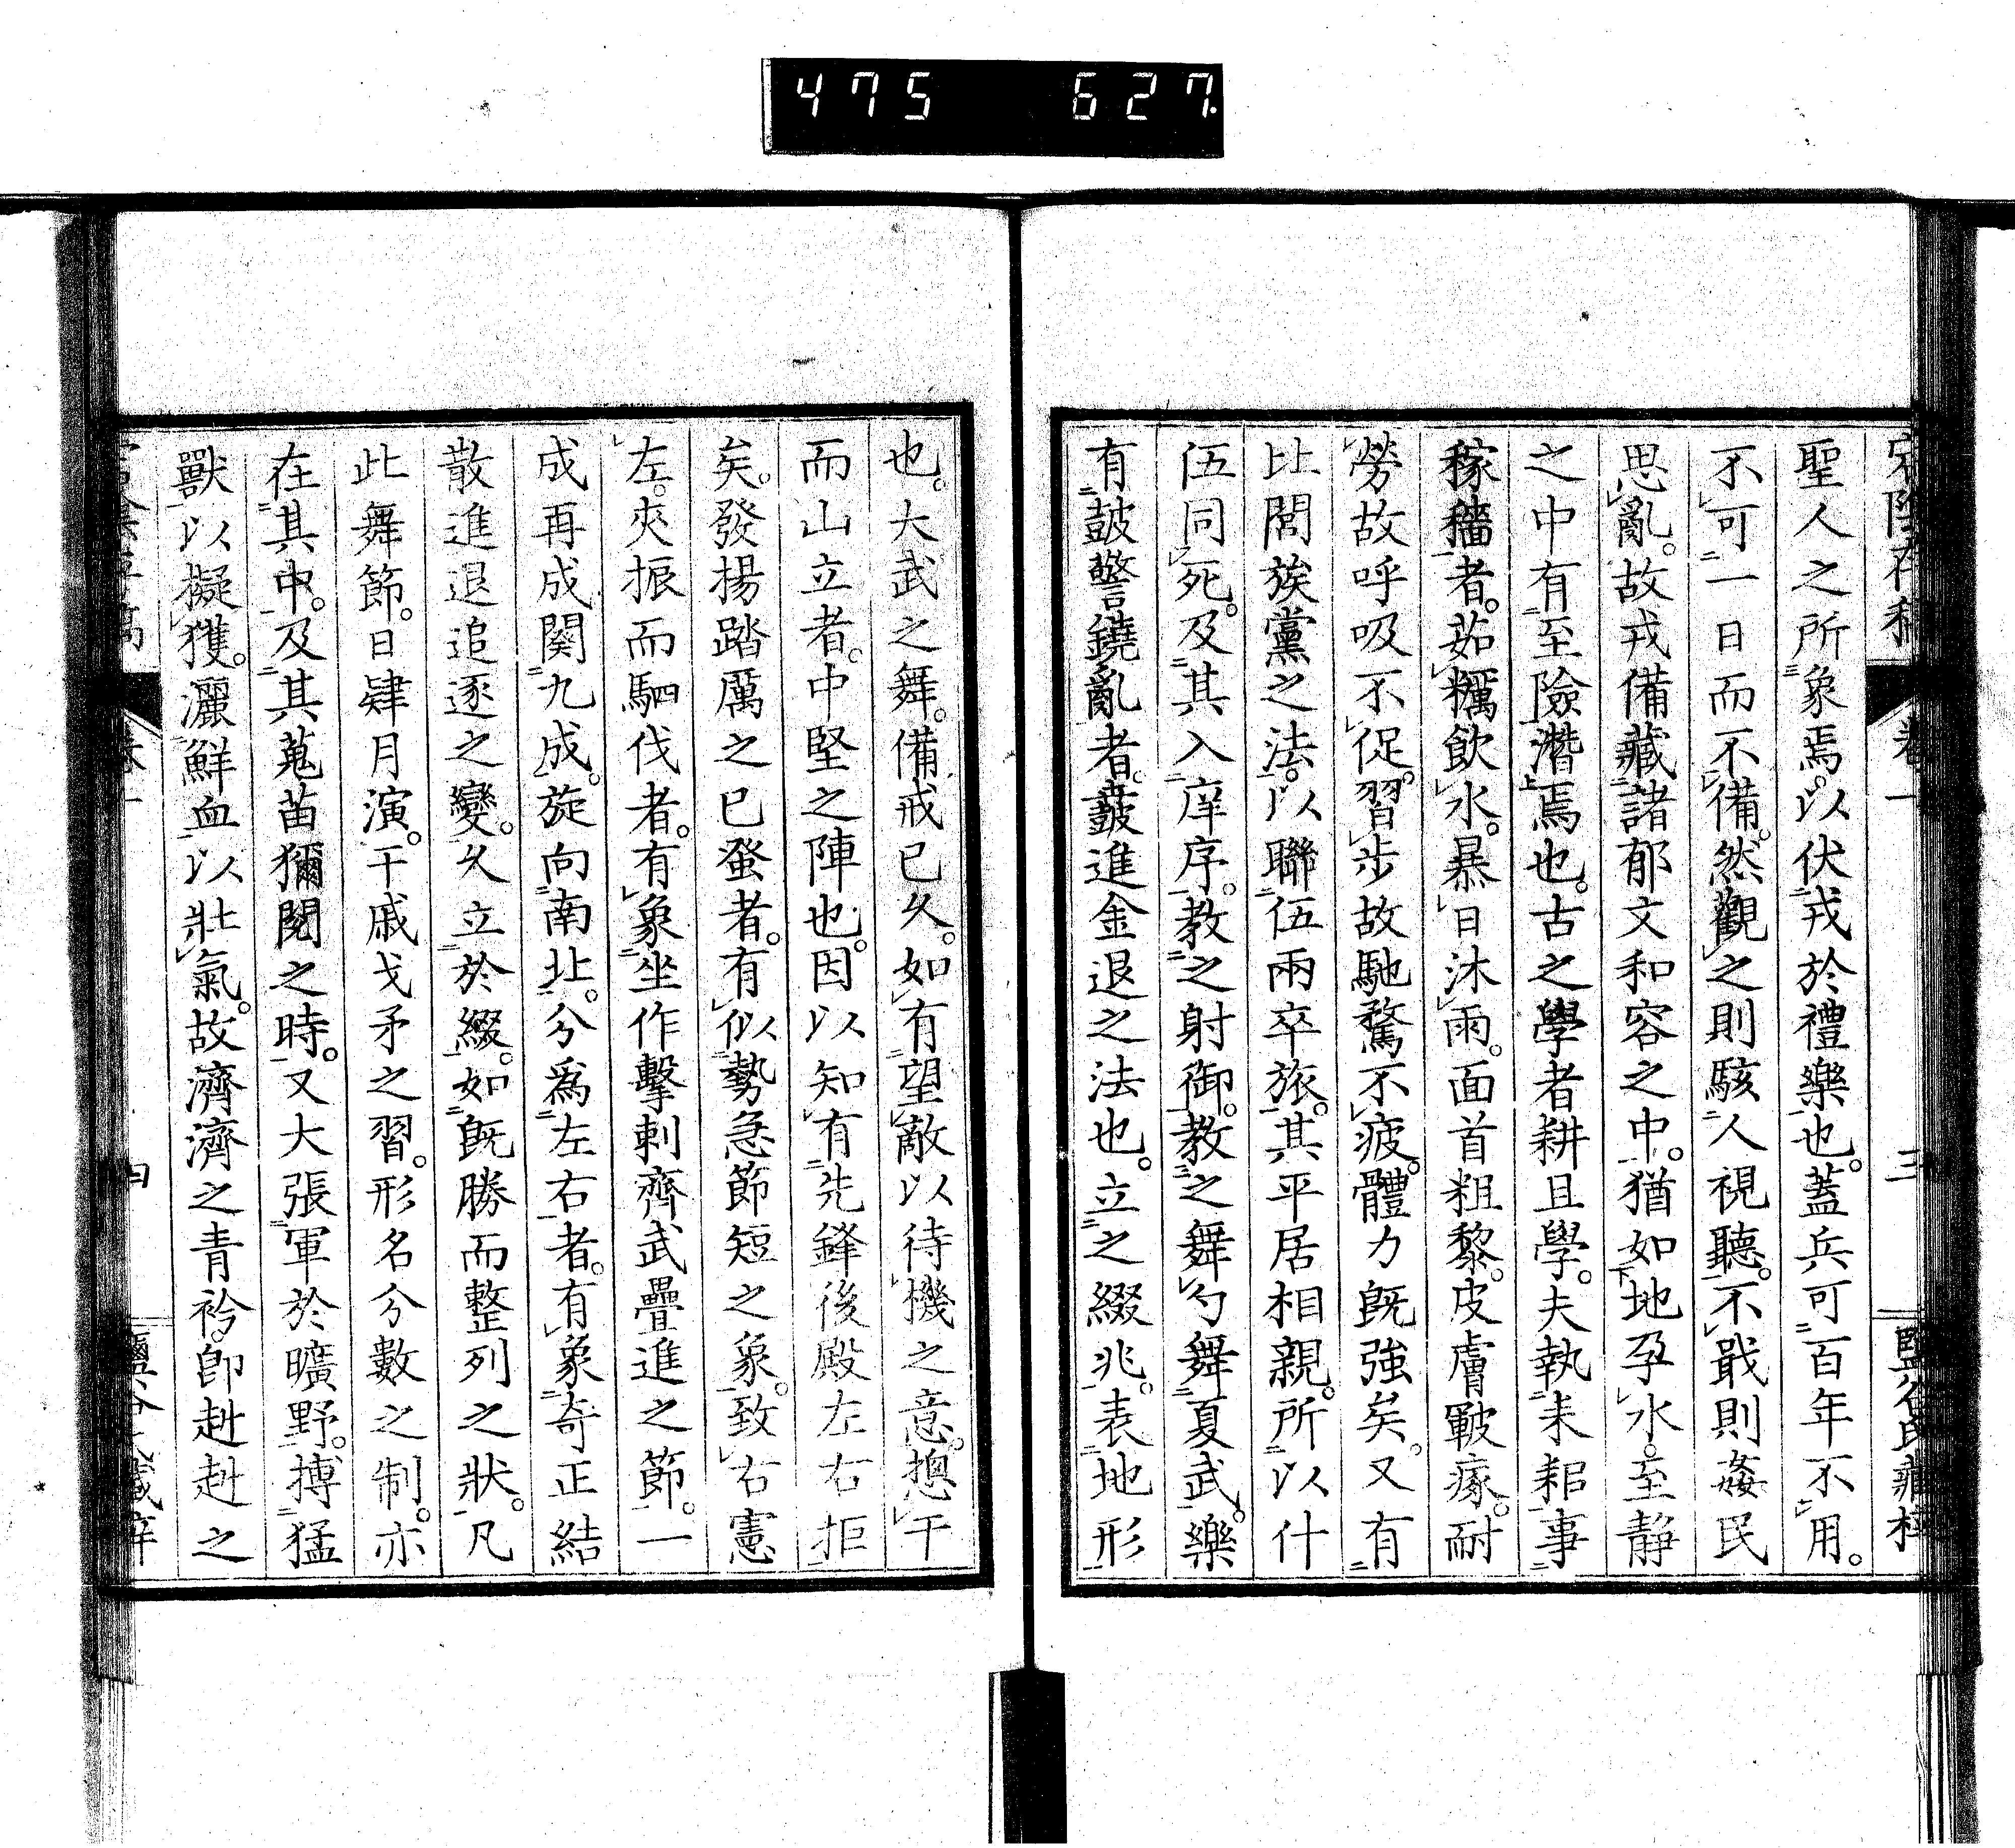 475 627
宕陰存稿 卷一 三 鹽谷氏藏梓
聖人之所象焉。以伏戎於禮樂也。蓋兵可百年不用。
不可一日而不備。然觀之則駭人視聽。不戢則姦民
思亂。故戎備藏諸郁文和容之中。猶如地孕水。至靜
之中有至險潛焉也。古之學者耕且學。夫執耒耜事
稼穡者。茹糲飲水。暴日沐雨。面首粗黎。皮膚皸瘃。耐
勞故呼吸不促。習步故馳騖不疲。體力既強矣。又有
比閭族黨之法。以聯伍兩卒旅。其平居相親。所以什
伍同死。及其入庠序。教之射御。教之舞勺舞夏武。樂
有鼓警鐃亂者。鼓進金退之法也。立之綴兆。表地形
也。大武之舞。備戒已久。如有望敵以待機之意。揔干
而山立者。中堅之陣也。因以知有先鋒後殿左右拒
矣。發揚踏厲之已蚤者。有似勢急節短之象。致右憲
左。夾振而駟伐者。有象坐作擊刺齊武疊進之節。一
成再成闋九成。旋向南北。分爲左右者。有象奇正結
散進退追逐之變。久立於綴。如既勝而整列之狀。凡
此舞節。日肄月演。干戚戈矛之習。形名分數之制。亦
在其中。及其蒐苗獮閱之時。又大張軍於曠野。搏猛
獸以擬獲。灑鮮血以壯氣。故濟濟之青衿。卽赳赳之
卷一 四